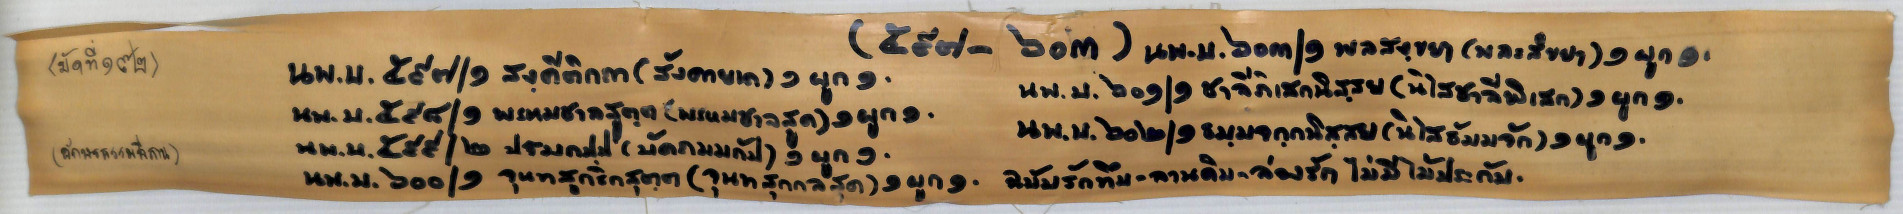 (มัดที่ ๑๙๒)
(อักษรธรรมอีสาน)
(๕๙๗ - ๖๐๓)
นพ.บ. ๕๙๗/๑ สงฺคีติกถา (สังคายเถ) ๑ ผูก ๑.
นพ.บ. ๕๙๘/๑ พรหมชาลสูตฺต (พรหมชาลสูต) ๑ ผูก ๑.
นพ.บ. ๕๙๙/๒ ปฐมกปฺป (บัดถมมกัป) ๑ ผูก ๑.
นพ.บ. ๖๐๐/๑ จุนฺทสูกริกสุตฺต (จุนทสุกกลสุต) ๑ ผูก ๑.
นพ.บ. ๖๐๓/๑ พลสงฺขยา (พละสังขยา) ๑ ผูก ๑.
นพ.บ. ๖๐๑/๑ ชาลีภิเสกนิสฺสย (นิไสชาลีพิเสก) ๑ ผูก ๑.
นพ.บ. ๖๐๒/๑ ธมฺมจกฺกนิสฺสย (นิไสธัมมจัก) ๑ ผูก ๑.
ฉบับรักทึบ - ลานดิบ - ล่องรัก ไม่มีไม้ประกับ.